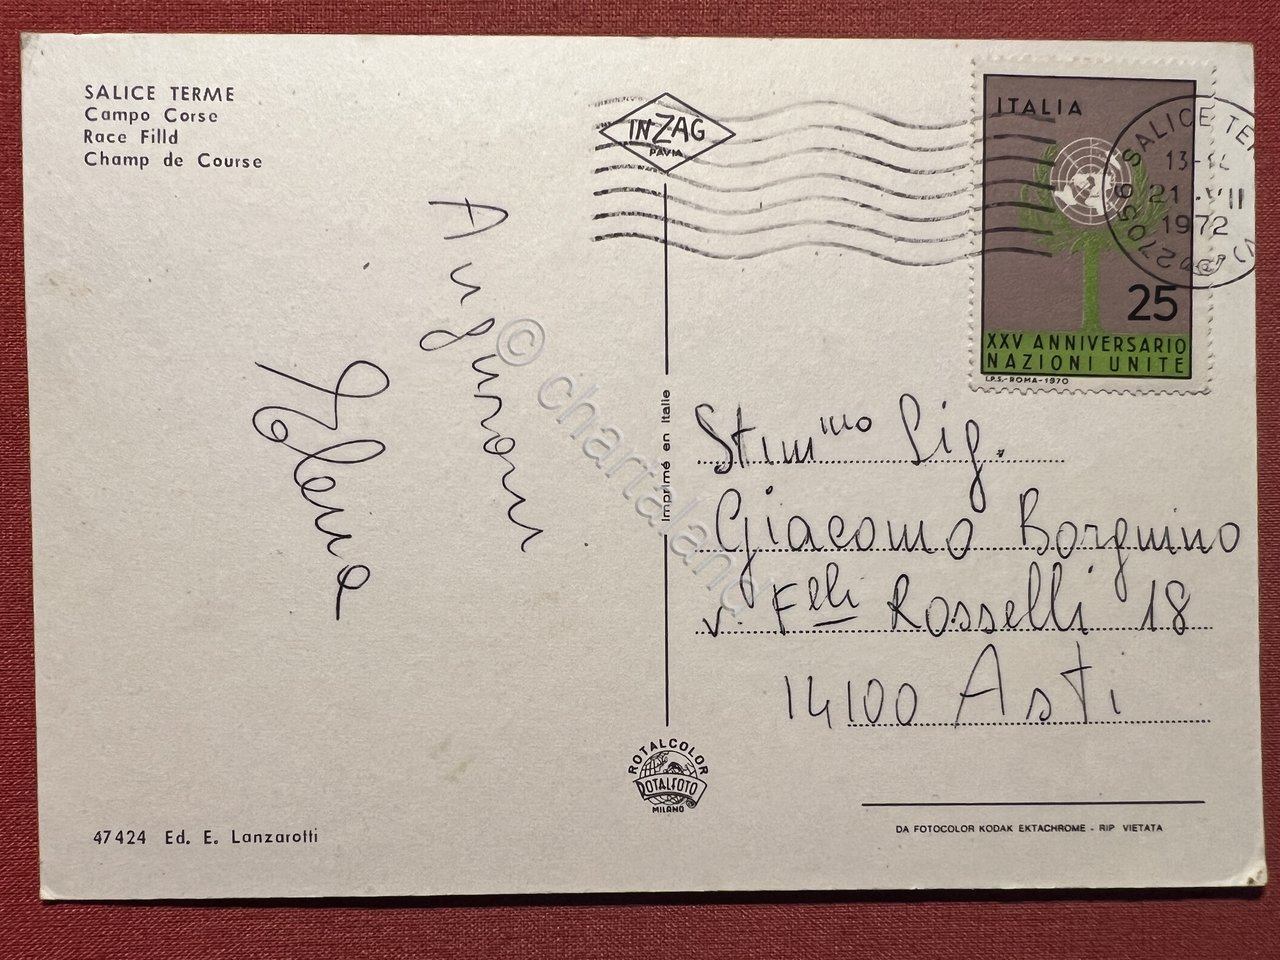 SALICE TERME
Campo Corse
Race Filld
Champ de Course
INZAG
PAVIA
ITALIA
25
XXV ANNIVERSARIO
NAZIONI UNITE
I.P.S.-ROMA-1970
27056 SALICE TE
13-
21 . VII
1972
Auguroni
Elena
Imprimé en Italie
Stim.mo Sig.
Giacomo Borgnino
v. F.lli Rosselli 18
14100 Asti
ROTALCOLOR
ROTALFOTO
MILANO
47424 Ed. E. Lanzarotti
DA FOTOCOLOR KODAK EKTACHROME - RIP VIETATA
© chartaland